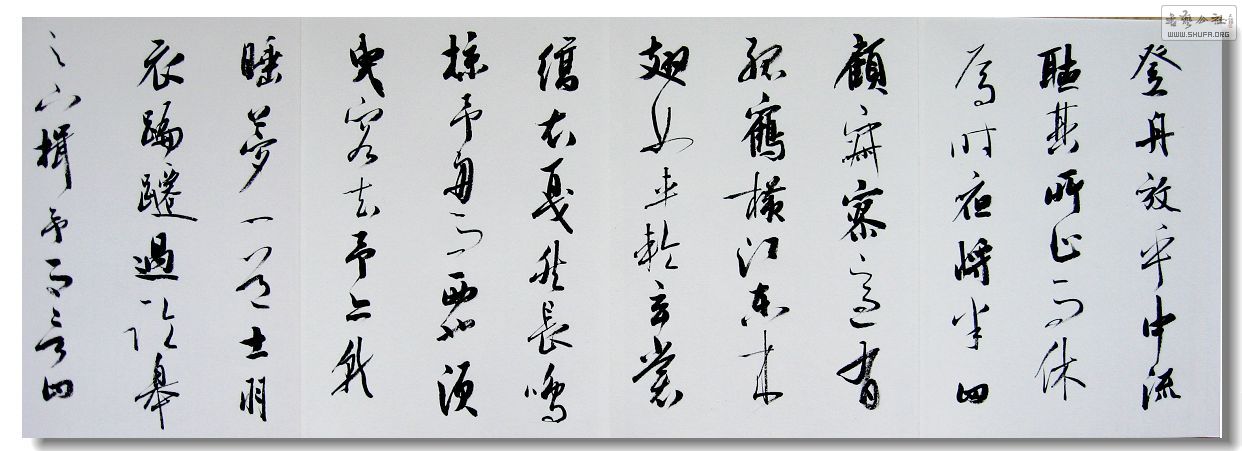 登舟放乎中流
聽其所止而休
焉時夜將半四
顧寂寥適有
孤鶴橫江東來
翅如車輪玄裳
縞衣戛然長鳴
掠予舟而西也須
臾客去予亦就
睡夢一道士羽
衣蹁躚過臨皋
之下揖予而言曰
书艺公社
WWW.SHUFA.ORG